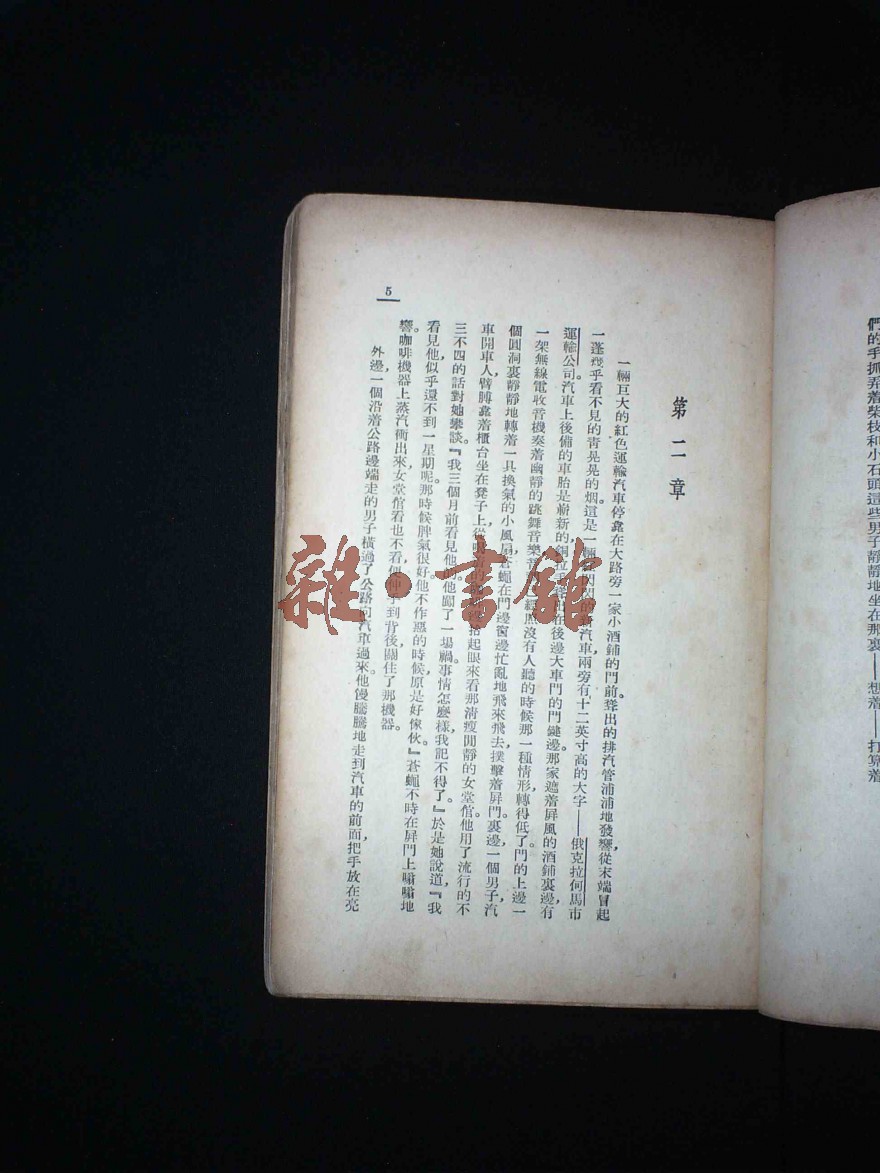 們的手抓弄着柴枝和小石頭這些男子靜靜地坐在那裏——想着——打算着
第二章
一輛巨大的紅色運輸汽車停靠在大路旁一家小酒鋪的門前。聳出的排汽管浦浦地發響，從末端冒起
一蓬幾乎看不見的青晃晃的烟。這是一輛閃閃的新汽車，兩旁有十二英寸高的大字——俄克拉何馬市
運輸公司。汽車上後備的車胎是嶄新的，銅在後邊大車門的門鍵邊。那家遮着屏風的酒鋪裏邊有
一架無線電收音機奏着幽靜的跳舞音樂，音照沒有人聽的時候那一種情形轉得低了。門的上邊一
個圓洞裏靜靜地轉着一具換氣的小風扇，蒼蠅在門邊窗邊忙亂地飛來飛去，撲擊着屏門。裏邊一個男子，汽
車開車人，臂膊靠着櫃台坐在凳子上，從抬起眼來看那清瘦閒靜的女堂倌。他用了流行的不
三不四的話對她攀談。『我三個月前看見他的。他闖了一場禍。事情怎麼樣，我記不得了。』於是她說道，『我
看見他似乎還不到一星期呢。那時候脾氣很好。他不作惡的時候，原是好傢伙。』蒼蠅不時在屏門上嘯嘯地
響。咖啡機器上蒸汽衝出來，女堂倌看也不看，便伸手到背後，關住了那機器。
外邊一個沿着公路邊端走的男子橫過了公路，向汽車過來。他慢騰騰地走到汽車的前面，把手放在亮
5
雜·書館